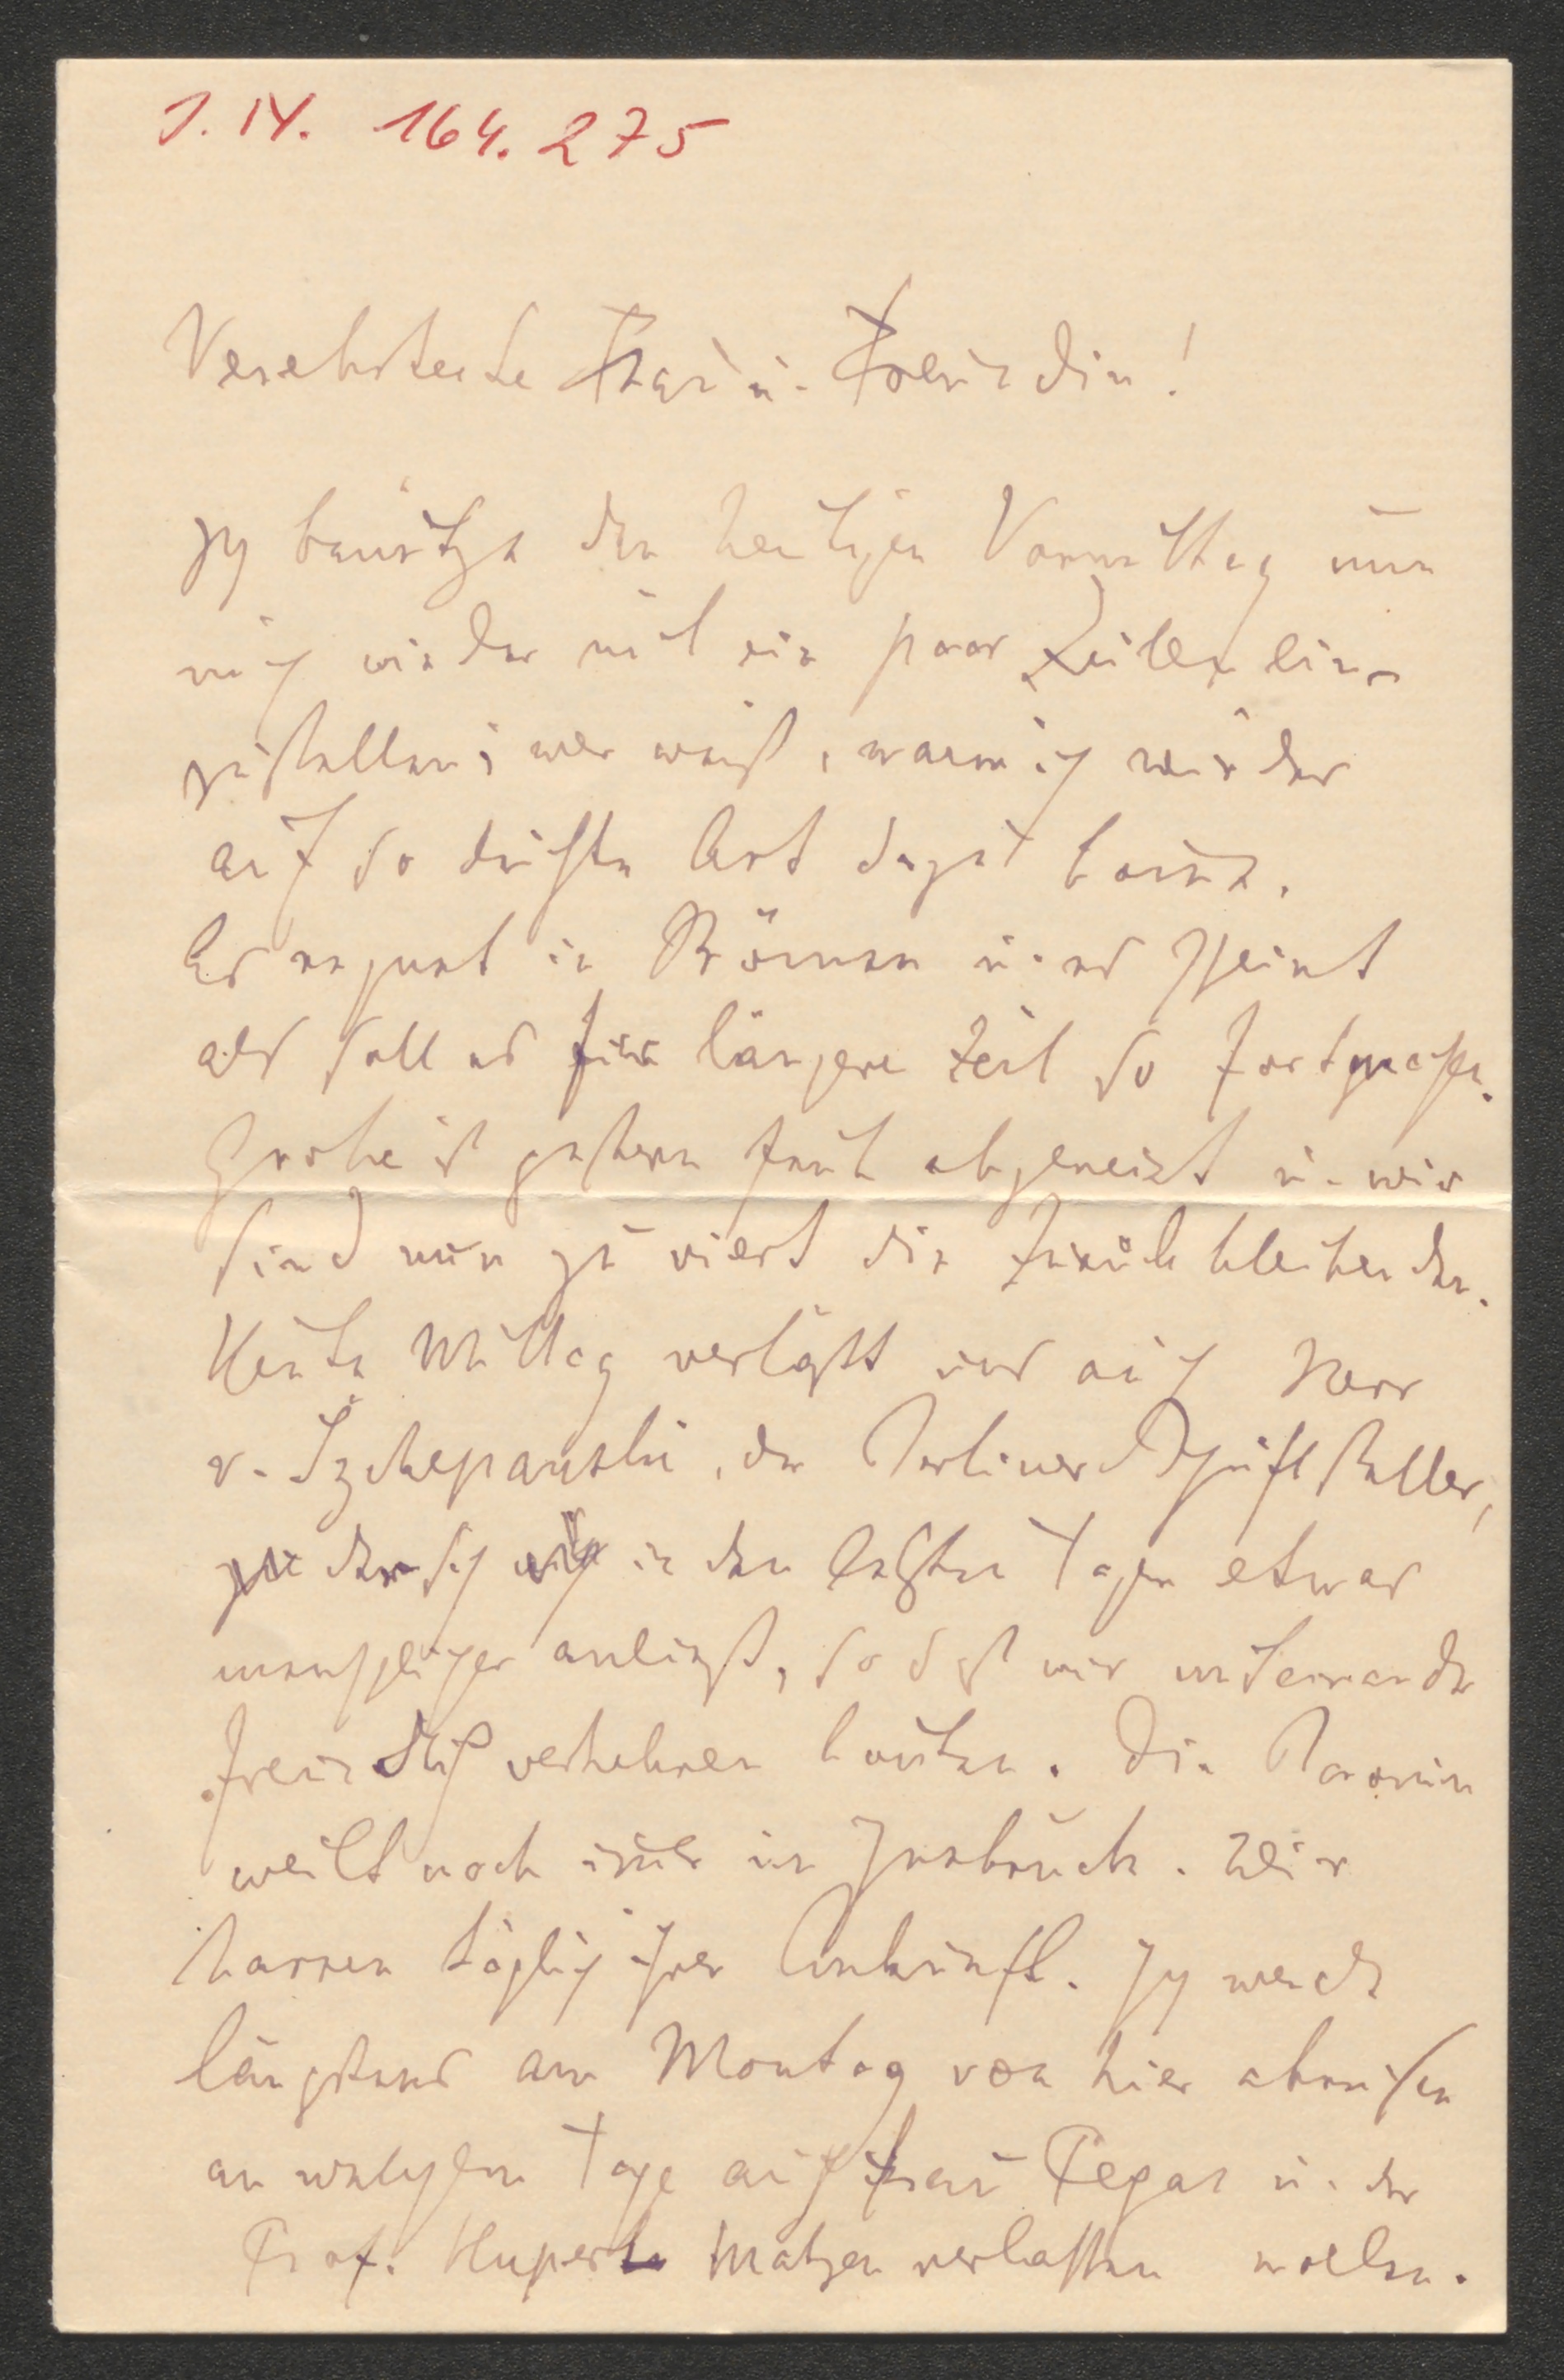 J. N. 164.275
Verehrteste Frau u. Freundin!
Ich benütze den heutigen Vormittag um
mich wieder mit ein paar Zeilen ein-
zustellen; wer weiß, wann ich wieder
auf so leichte Art dazu komme.
Es regnet in Strömen u. es scheint
als soll es für längere Zeit so fortgießen.
Grohe ist gestern früh abgereist u. wir
sind nun zu viert die Zurückbleibenden.
Heute Mittag verläßt uns auch Herr
v. Szczepanski, der Berliner Schriftsteller,
zu der sich in den letzten Tagen etwas
menschlicher anließ, so daß wir miteinander
freundlich verkehren konnten. Die Baronin
weilt noch immer in Innsbruck. Wir
harren täglich ihrer Ankunft. Ich werde
längstens am Montag von hier abreisen
an welchem Tage auch Frau Fegar u. der
Prof. Huperz Matzen verlassen wollen.